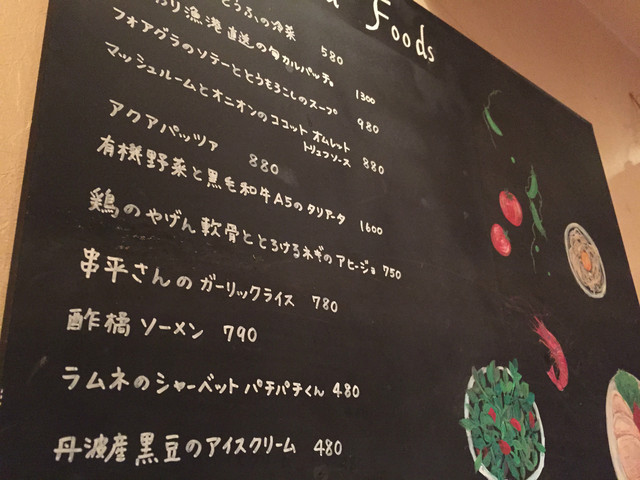 Foods
とうふの冷菜 580
漁港直送の旬カルパッチョ 1300
フォアグラのソテーととうもろこしのスープ 980
マッシュルームとオニオンのココット オムレット
トリュフソース 880
アクアパッツァ 880
有機野菜と黒毛和牛A5のタリアータ 1600
鶏のやげん軟骨ととろけるネギのアヒージョ 750
串平さんのガーリックライス 780
酢橘ソーメン 790
ラムネのシャーベット パチパチくん 480
丹波産黒豆のアイスクリーム 480